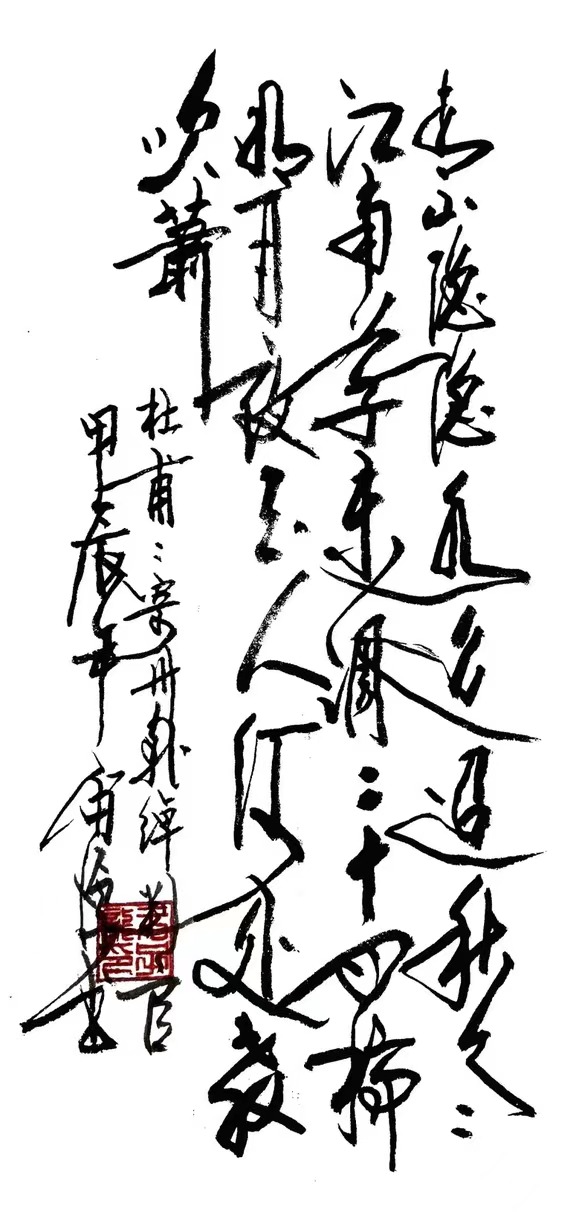 青山隐隐水迢迢秋尽
江南草未凋二十四桥
明月夜玉人何处教
吹蕭
杜甫寄州韩绰官
甲辰年书